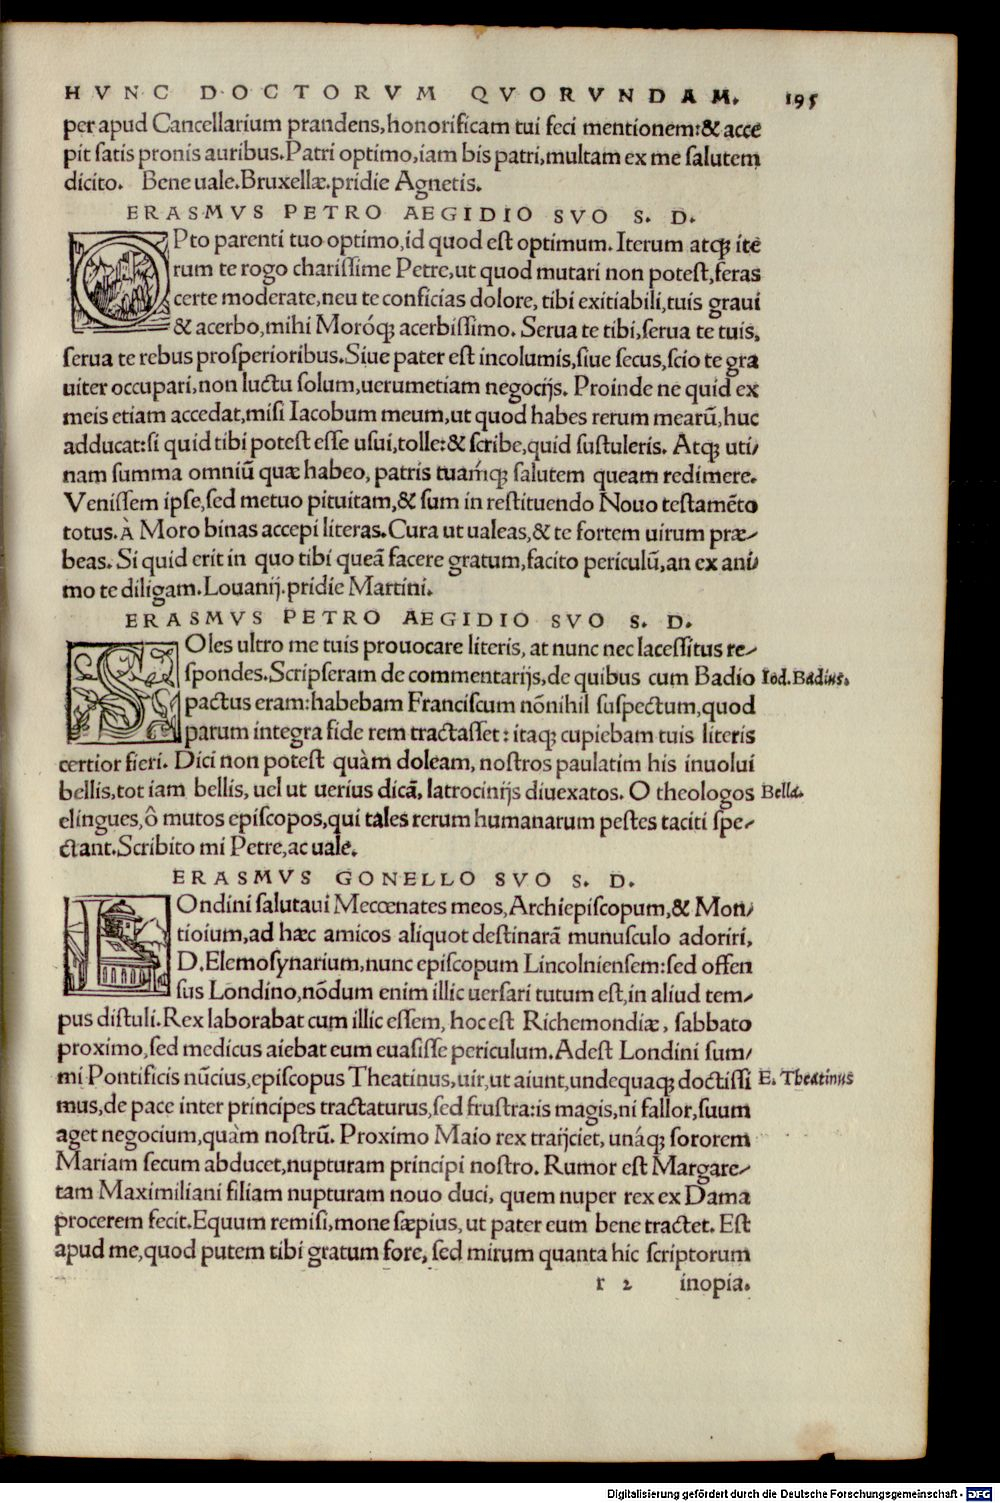 HVNC DOCTORVM QVORVNDAM. 195
per apud Cancellarium prandens,honorificam tui feci mentionem:& acce
pit satis pronis auribus.Patri optimo,iam bis patri,multam ex me salutem
dicito. Bene uale.Bruxellæ.pridie Agnetis.
ERASMVS PETRO AEGIDIO SVO S. D.
OPto parenti tuo optimo,id quod est optimum. Iterum atqꝫ ite
rum te rogo charissime Petre,ut quod mutari non potest,feras
certe moderate,neu te conficias dolore, tibi exitiabili,tuis graui
& acerbo,mihi Moróqꝫ acerbissimo. Serua te tibi,serua te tuis,
serua te rebus prosperioribus.Siue pater est incolumis,siue secus,scio te gra
uiter occupari,non luctu solum,uerumetiam negocijs. Proinde ne quid ex
meis etiam accedat,misi Iacobum meum,ut quod habes rerum mearũ,huc
adducat:si quid tibi potest esse usui,tolle:& scribe,quid sustuleris. Atqꝫ uti/
nam summa omniũ quæ habeo, patris tuamq́ꝫ salutem queam redimere.
Venissem ipse,sed metuo pituitam,& sum in restituendo Nouo testamẽto
totus. À Moro binas accepi literas.Cura ut ualeas,& te fortem uirum præ/
beas. Si quid erit in quo tibi queã facere gratum,facito periculũ,an ex ani/
mo te diligam.Louanij.pridie Martini.
ERASMVS PETRO AEGIDIO SVO S. D.
SOles ultro me tuis prouocare literis, at nunc nec lacessitus re/
spondes.Scripseram de commentarijs,de quibus cum Badio Iod.Badius.
pactus eram:habebam Franciscum nõnihil suspectum,quod
parum integra fide rem tractasset: itaqꝫ cupiebam tuis literis
certior fieri. Dici non potest quàm doleam, nostros paulatim his inuolui
bellis,tot iam bellis, uel ut uerius dicã, latrocinijs diuexatos. O theologos Bella.
elingues,ô mutos episcopos,qui tales rerum humanarum pestes taciti spe/
ctant.Scribito mi Petre,ac uale.
ERASMVS GONELLO SVO S. D.
LOndini salutaui Mecœnates meos,Archiepiscopum,& Mon/
tioium,ad hæc amicos aliquot destinarã munusculo adoriri,
D.Elemosynarium,nunc episcopum Lincolniensem:sed offen
sus Londino,nõdum enim illic uersari tutum est,in aliud tem/
pus distuli.Rex laborabat cum illic essem, hoc est Richemondiæ, sabbato
proximo,sed medicus aiebat eum euasisse periculum.Adest Londini sum/
mi Pontificis nũcius,episcopus Theatinus,uir,ut aiunt,undequaqꝫ doctissi E. Theatinus
mus,de pace inter principes tractaturus,sed frustra:is magis,ni fallor,suum
aget negocium,quàm nostrũ. Proximo Maio rex traijciet, unáqꝫ sororem
Mariam secum abducet,nupturam principi nostro. Rumor est Margare/
tam Maximiliani filiam nupturam nouo duci, quem nuper rex ex Dama
procerem fecit.Equum remisi,mone sæpius, ut pater eum bene tractet. Est
apud me,quod putem tibi gratum fore, sed mirum quanta hic scriptorum
r 2 inopia.
Digitalisierung gefördert durch die Deutsche Forschungsgemeinschaft - DFG